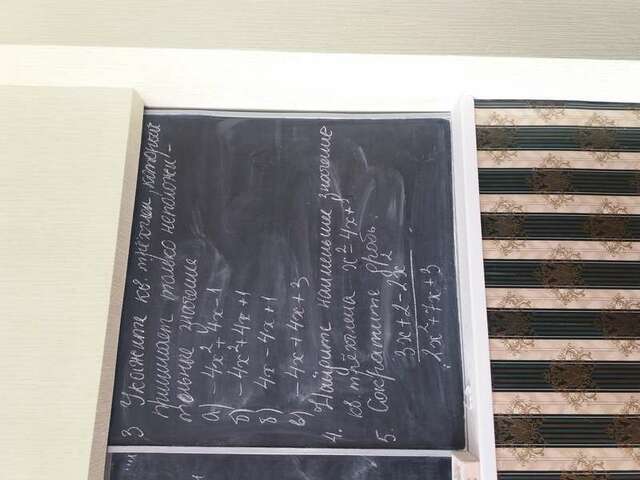 3 Укажите кв. трёхчлен, который
принимает только неположи-
тельные значение
а) -4x²+4x-1
б) -4x²+4x+1
в) 4x-4x+1
в) -4x+4x+3
4. Найдите наименьшее значение
кв. трёхчлена x²-4x+
5. Сократите дробь.
3x+2-2x²
2x²+7x+3